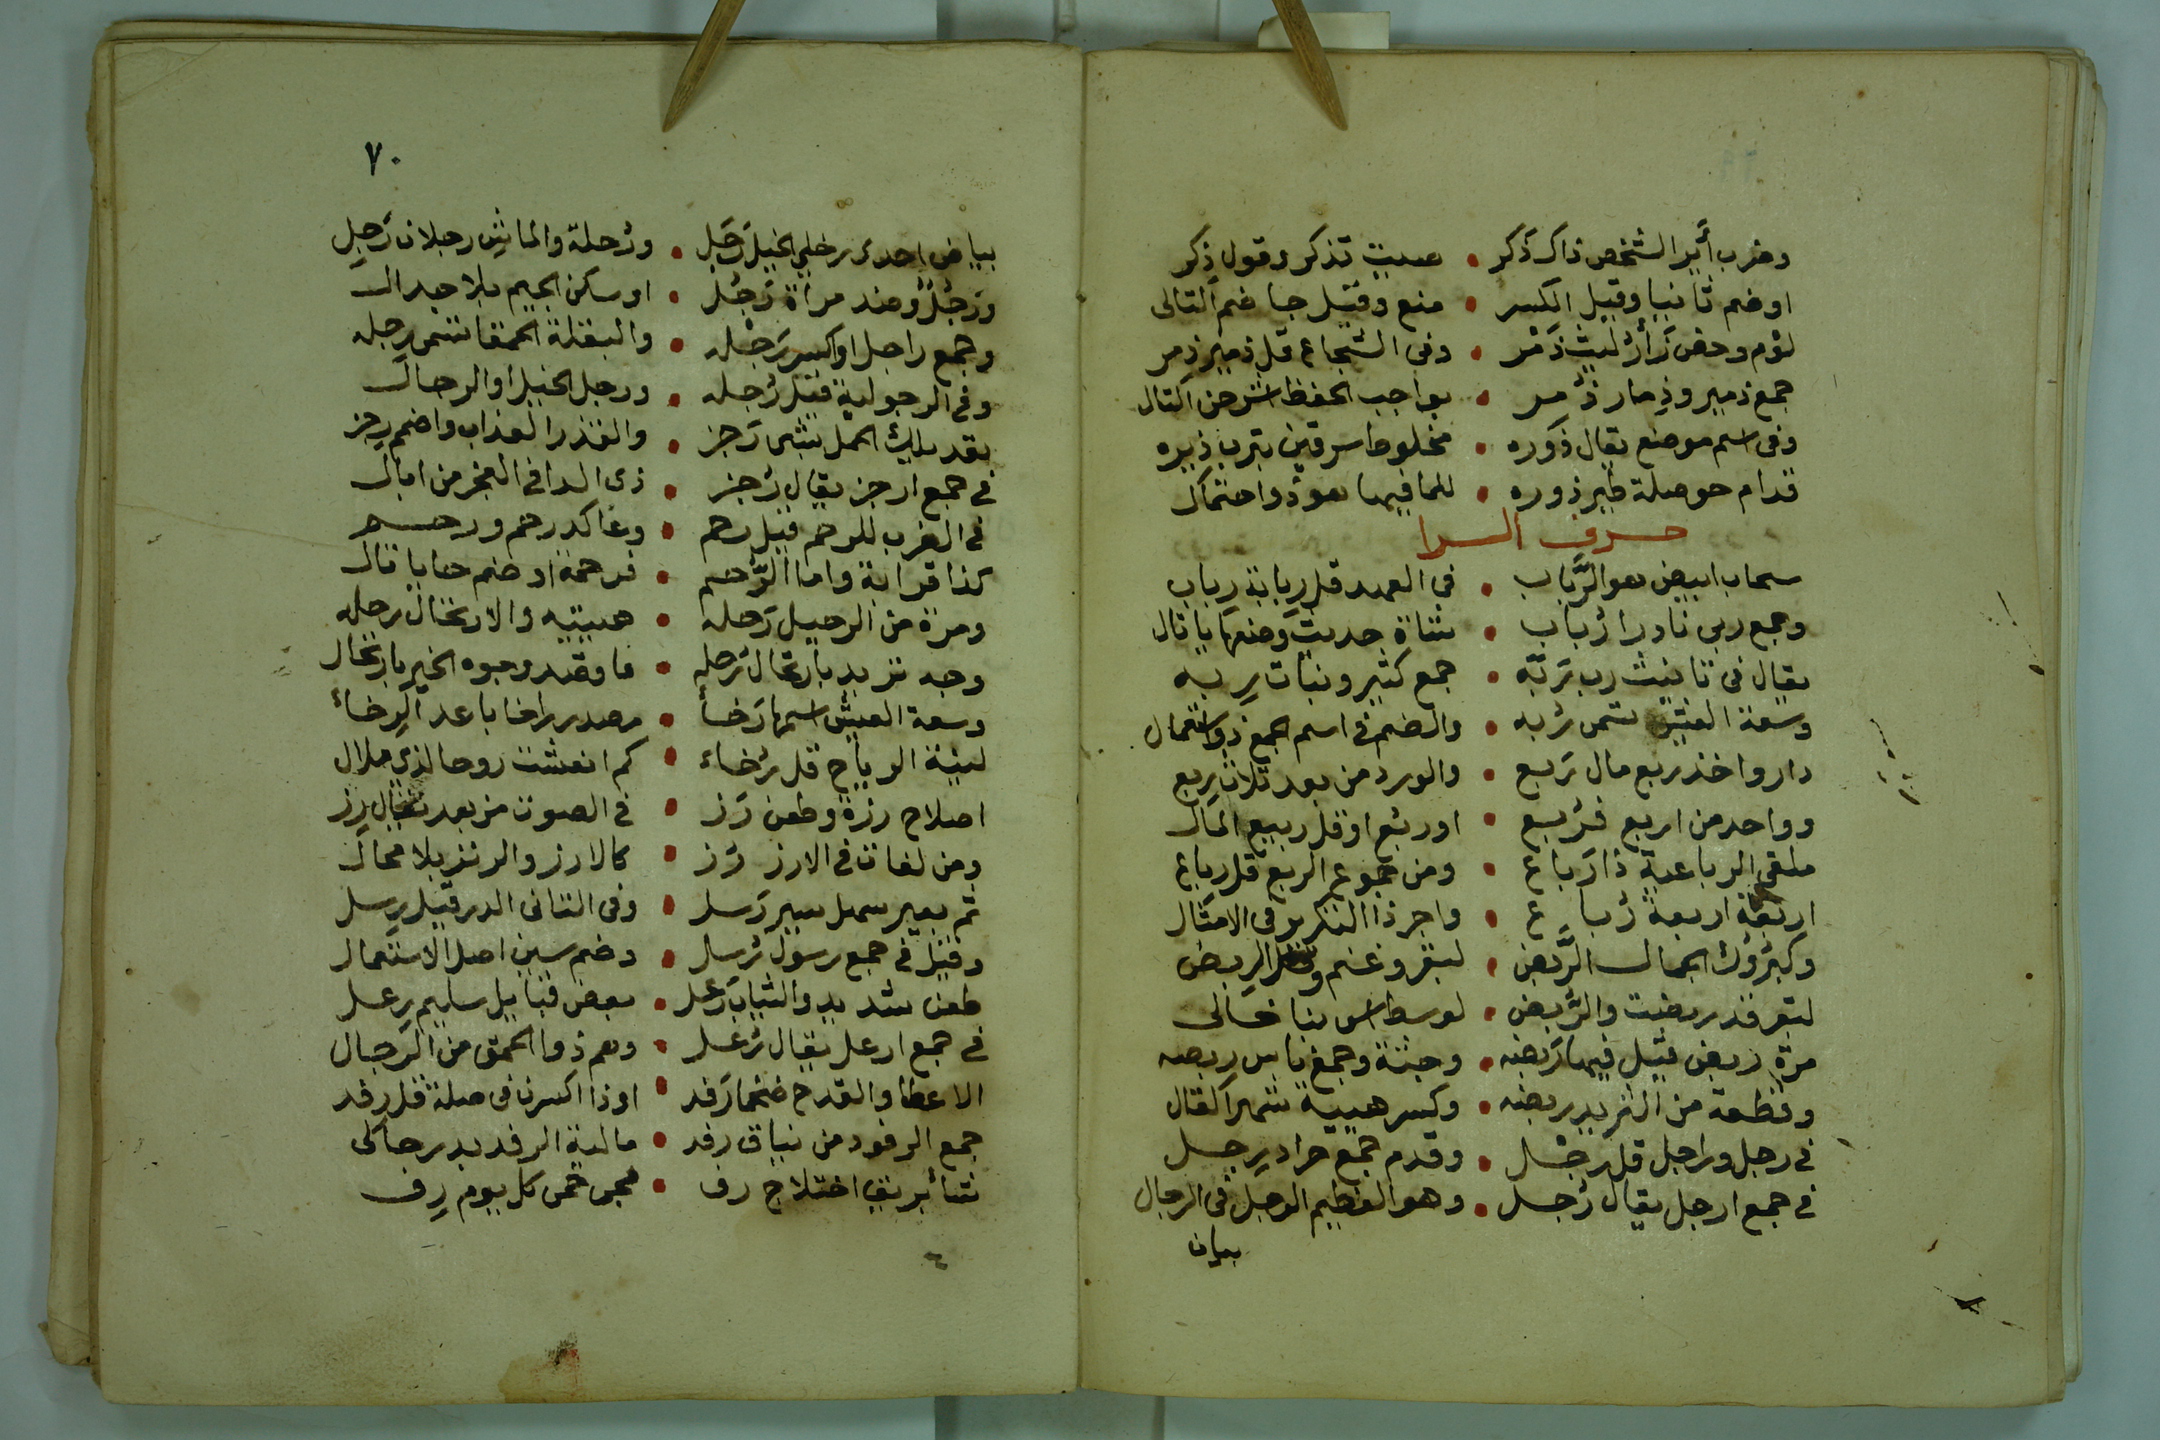 وضرب أير الشخص ذاك ذكر • صيت تذكر وقول ذكر
او ضم ثانيا وقيل الكسر • منع وقيل جا ضم التالى
لؤم وحض زأر ليث ذَمْر • وفى الشجاع قل ذمير ذِمر
جمع ذمير وذِمار ذُمر • بواجب الحفظ اشرحن التال
وفى اسم موضع يقال ذكوره • مخلوط سرقين بترب ذيره
قدام حوصلة طير ذوره • للما فيها هو ذو احتمال
حرف الرا
سحاب ابيض هو الرَّباب • فى العهد قل رِبابة رِباب
وجمع ربى نادرا رُباب • شاة حديث وضعها يا تال
يقال فى تانيث رب رَبّه • جمع كثير ونبات رِبه
وسعة العيش تسمى رُبه • والضم فى اسم الجمع ذو استعمال
دار واخذ ربع مال رَبع • والورد من بعد ثلاث رِبع
وواحد من اربع فرُبع • او ربُع او قل ربيع المال
ملقى الرباعية ذا رَباع • ومن جموع الربع قل رِباع
اربعة اربعة رُباع • واجر ذا التكرير فى الامثال
وكبُرُوك الجمال الرَّبض • لبقر وغنم الرِبض
لبقر قد ربضت والرُّبض • لوسط اس بنا خالى
مرة ربض قيل فيها رَبضه • وجثة وجمع ناس رِبضه
وقطعة من الثريد ربضه • وكسر هيئة شهير القال
فى رجل وراجل قل رَجْل • وقدم جمع جراد رِجل
فى جمع ارجل يقال رُجل • وهو العظيم الرجل فى الرجال
بياض
٧٠
بياض احدى رجلى الخيل رَجَل • ورُحلة والماشِ رجلان رَجِل
ورَجُلٌ وضد مرأة رَجُل • او سكن الجيم بلا جدال
وجمع راجل او اكسر رَجْله • والبقلة الحمقا تسمى رِجله
وفى الرجولية قيل رُجله • ورجل الخيل او الرجال
يقد الحمل يسمى رَجز • والقذر العذاب واضمم رِجز
فى جمع ارجز يقال رُجز • ذى الدا فى العجز من ابال
فى الضرب للرحم قيل رحم • وعا كد رحم ورحم
كذا قرابة واما الرُّحم • فرحمة او ضم حا يا تال
ومرة من الرحيل رَحله • هيئته والارتحال رِحله
وجه تريد بارتحال رُحله • فاقصد وجوه الخير بارتحال
وسعة العيش اسمها رَخأ • مصدر راخا باعد الرِخاء
لينة الرياح قل رُخاء • كم انعشت روحا لذى ملال
اصلاح رزة وطعن رَز • فى الصوت من بعد يقال رِز
ومن لغات فى الارز رُز • كالارز والرنز بلا محال
ثم بعير سهل سير رَسل • وفى التانى الدر قيل رِسل
وقيل فى جمع رسول رُسل • وضم سين اصل الاستعمال
طعن شديد والثياب رَعل • بعض قبايل سليم رِعل
فى جمع ارعل يقال رُعل • وهم ذوا الحمق من الرجال
الاعطا والقدح ضخما رَفد • او ذا اكسرنا فى صلة قل رِفد
جمع الرفود من نياق رفد • مالية الرفد بدر حالى
نتاثر نف اختلاج رف • مجى حمى كل يوم رِف